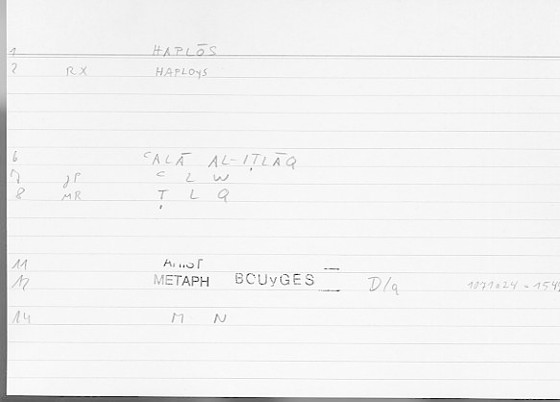 1 HAPLŌS
2 RX HAPLOyS
6 ʿALĀ AL-IṬLĀQ
7 JP ʿ L W
8 MR Ṭ L Q
11
12 METAPH BCUyGES D/a
14 M N